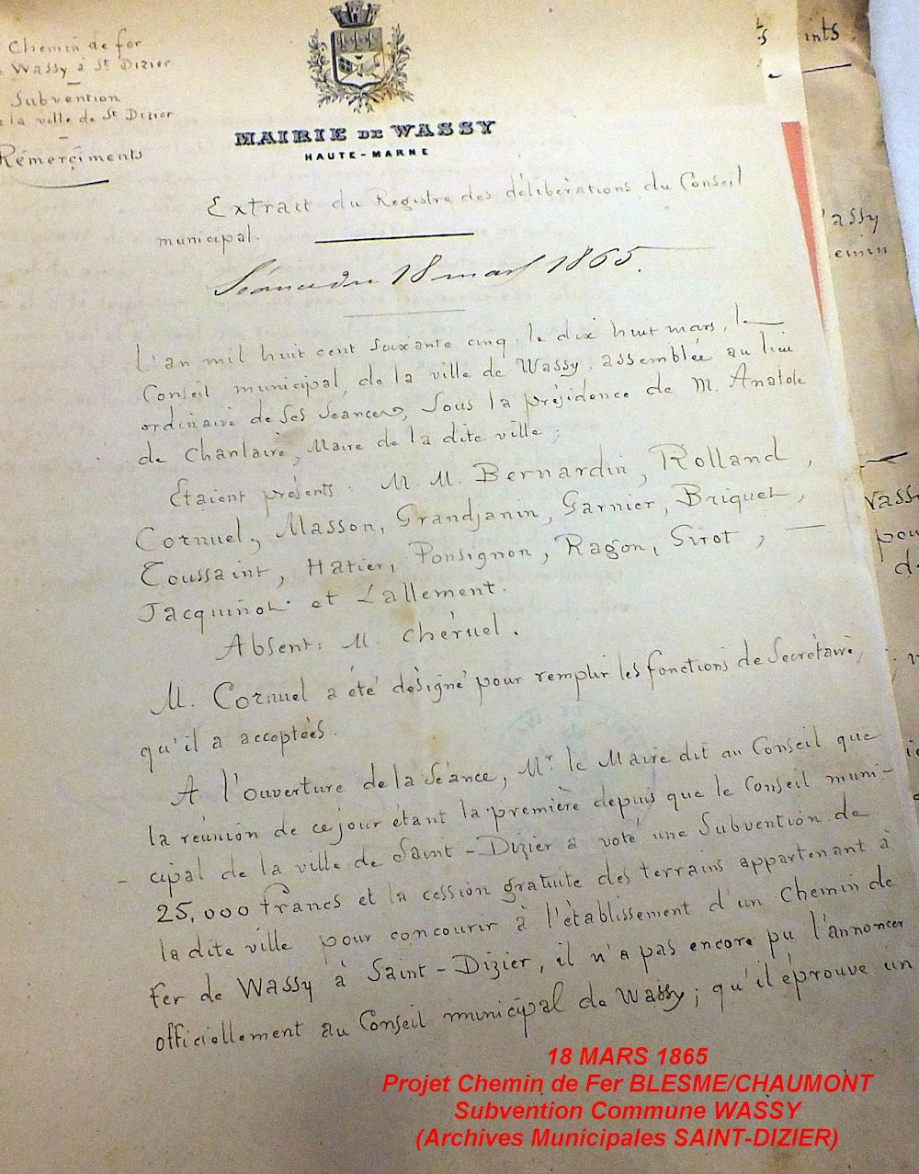 Chemin de fer
Wassy à St Dizier
Subvention
la ville de St Dizier
Rémerçiments
MAIRIE DE WASSY
HAUTE-MARNE
Extrait du Registre des délibérations du Conseil
municipal.
Séance du 18 mars 1865.
L'an mil huit cent soixante cinq, le dix huit mars, le
Conseil municipal de la ville de Wassy, assemblée au lieu
ordinaire de ses séances, sous la présidence de M. Anatole
de Chanlaire, Maire de la dite ville;
Etaient présents: M. M. Bernardin, Rolland,
Cornuel, Masson, Grandjanin, Garnier, Briquet,
Toussaint, Hatier, Ponsignon, Ragon, Sirot, —
Jacquinot et Lallement.
Absent: M. Chéruel.
M. Cornuel a été désigné pour remplir les fonctions de Secrétaire,
qu'il a acceptées.
A l'ouverture de la Séance, Mr le Maire dit au Conseil que
la réunion de ce jour étant la première depuis que le Conseil muni-
cipal de la ville de Saint-Dizier a voté une Subvention de
25,000 francs et la cession gratuite des terrains appartenant à
la dite ville pour concourir à l'établissement d'un Chemin de
fer de Wassy à Saint-Dizier, il n'a pas encore pu l'annoncer
officiellement au Conseil municipal de Wassy; qu'il éprouve un
18 MARS 1865
Projet Chemin de Fer BLESME/CHAUMONT
Subvention Commune WASSY
(Archives Municipales SAINT-DIZIER)